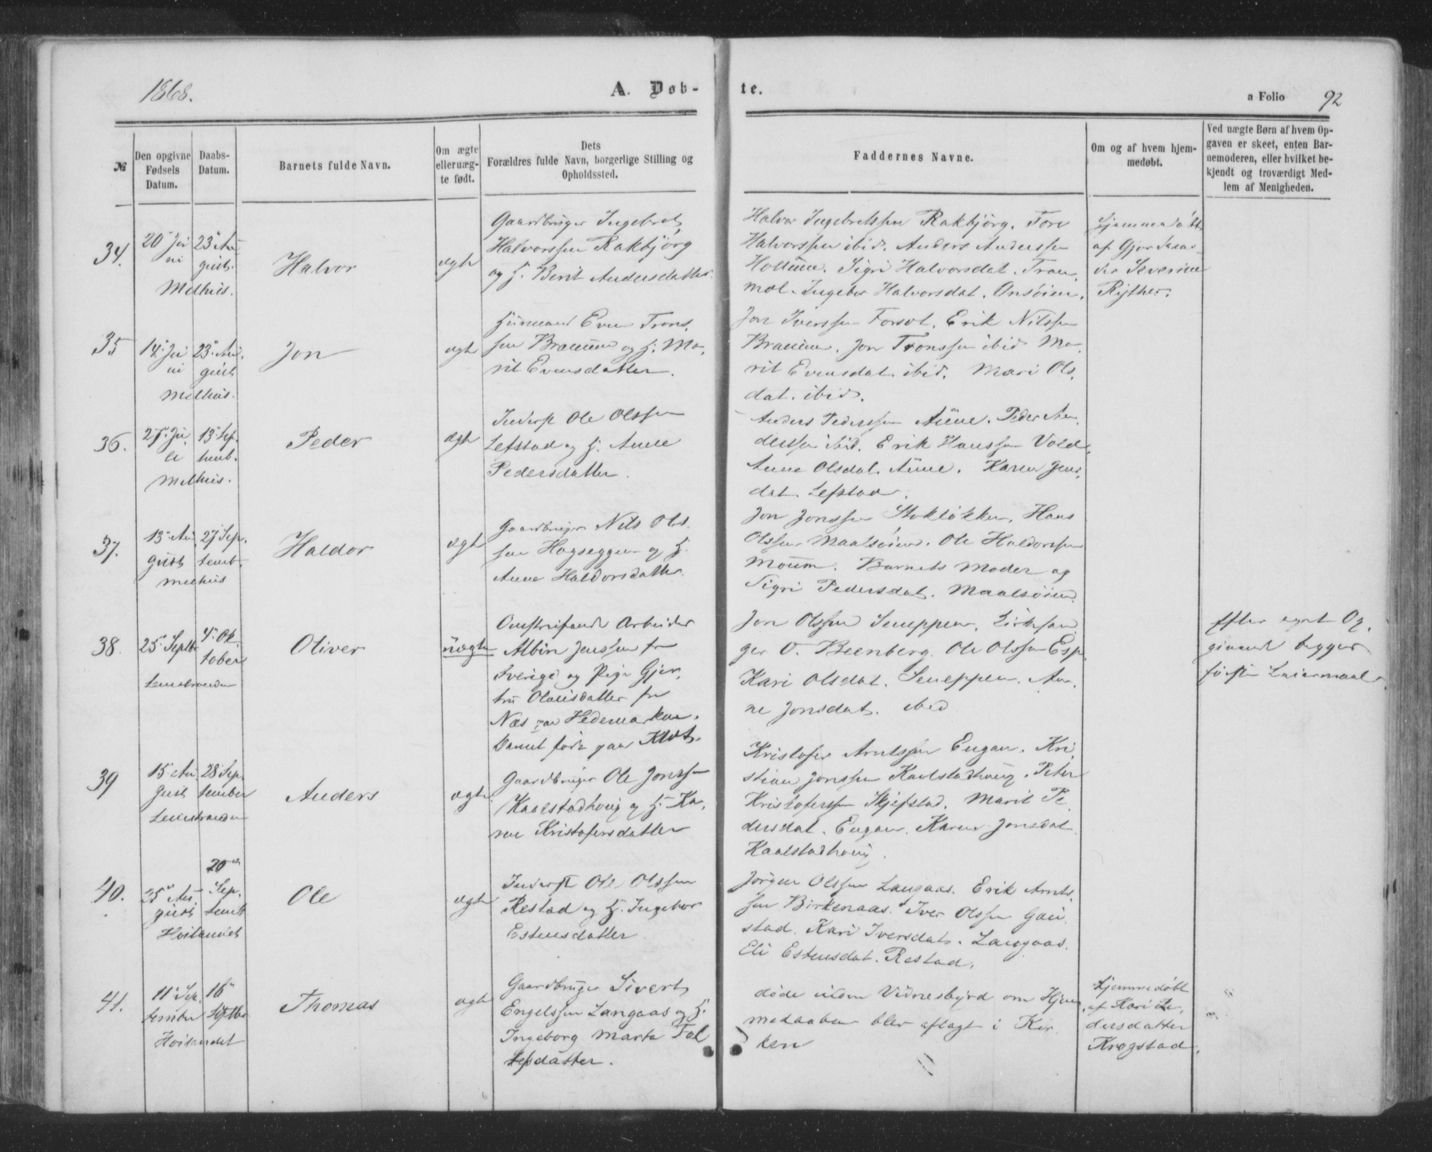 1868.
A. Døb-
te.
a Folio 92
№
Den opgivne
Fødsels
Datum.
Daabs-
Datum.
Barnets fulde Navn.
Om ægte
eller uæg-
te født.
Dets
Forældres fulde Navn, borgerlige Stilling og
Opholdssted.
Faddernes Navne.
Om og af hvem hjem-
medøbt.
Ved uægte Børn af hvem Op-
gaven er skeet, enten Bar-
nemoderen, eller hvilket be-
kjendt og troværdigt Med-
lem af Menigheden.
34.
20 Ju
ni
Melhus.
23 Au
gust.
Halvor
ægte
Gaardbruger Ingebrigt
Halvorssen Rakbjørg
og H. Berit Andersdatter
Halvor Ingebrigtssen Rakbjørg. Tore
Halvorssen ibid. Anders Anderssen
Sigri Halvorsdat.
Ingebor Halvorsdat. Onsøien.
Hjemmedøbt
af
Severine
35
14 Ju
ni
Melhus.
23 Au
gust
Jon
ægte
Husmand Even Trons
sen Bræmne og H. Ma
rit Evensdatter.
Jon Iverssen Forsot. Erik Nilssen
Bræmne. Jon Tronssen ibid Ma
rit Evensdat. ibid. Mari Ols
dat. ibid.
36.
27 Ju
li
Melhus.
13 Sep.
temb.
Peder
ægte
Inderst Ole Olssen
Lefstad og H. Anne
Pedersdatter.
Anders Pederssen Aune. Peder An
derssen ibid. Erik Hanssen Vold.
Anne Olsdat. Aune. Karen Jens
dat. Lefstad.
37.
13 Au
gust
Melhus
27 Sep.
temb.
Haldor
ægte
Gaardbruger Nils Ols
sen Hogseggen og H.
Anne Haldorsdatter.
Jon Jonssen Stokløkken. Hans
Olssen Maalsøien. Ole Haldorssen
Moum. Barnets Moder og
Sigri Pedersdat. Maalsøien
38.
25 Septb
Lensstranden
4 Ok
tober
Oliver
uægte
Omstreifende Arbeider
Albin Jenssen fr
Sverige og Pige Gjer
tru Olausdatter fra
Næs paa Hedemarken.
Barnet født paa Klæt.
Jon Olssen Sneppen. Kirkesan
ger O. Beenberg. Ole Olssen Esp.
Kari Olsdat. Sneppen. An
ne Jonsdat. ibid
Efter egnet Op
givende begges
første Leiermaal.
39
15 Au
gust
Lensstranden
28 Sep.
tember
Anders
ægte
Gaardbruger Ole Jonssen
Kaalstadhoug og H. Ka
ren Kristofersdatter
Kristofer Arntssen Engan. Kri
stian Jonssen Kaalstadhoug. Peter
Kristoferssen Skjefstad. Marit Pe
dersdat. Engan. Karen Jonsdat.
Kaalstadhoug.
40.
25 Au
gust
Høilandet
20
Sep.
temb
Ole
ægte
Inderst Ole Olssen
Restad og H. Ingebor
Estensdatter.
Jørgen Olssen Langaas. Erik Arnts
sen Birkenaas. Iver Olssen Gau
stad. Kari Iversdat. Langaas.
Eli Estensdat. Restad.
41.
11 Sep.
tember
Høilandet
16
Septbr
Thomas
ægte
Gaardbruger Sivert
Engelssen Langaas og H.
Ingeborg Marta Tol
lefsdatter.
døde inden Vidnesbyrd om Hjem
medaaben blev aflagt i Kir
ken
Hjemmedøbt
af Kari Pe
dersdatter
Krogstad.